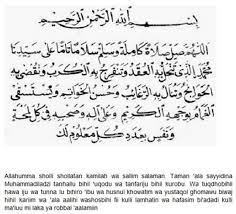 بسم الله الرحمن الرحيم
اللهم صل صلاة كاملة وسلم سلاما تاما على سيدنا
محمد الذي تنحل به العقد وتنفرج به الكرب وتقضى به
الحوائج وتنال به الرغائب وحسن الخواتم ويستسقى
الغمام بوجهه الكريم وعلى اله وصحبه في كل لمحة
ونفس بعدد كل معلوم لك
Allahumma sholli sholatan kamilah wa salim salaman. Taman 'ala sayyidina
Muhammadiladzi tanhallu bihil 'uqodu wa tanfariju bihil kurobu. Wa tuqdhobihil
hawa iju wa tunna lu bihiro 'ibu wa husnul khowatim wa yustaqol ghomawu biwaj
hihil kariim wa 'ala aalihi washosbihi fii kulli lamhatin wa hafasim bi'adadi kulli
ma'luu mi laka ya robbal 'aalamiin